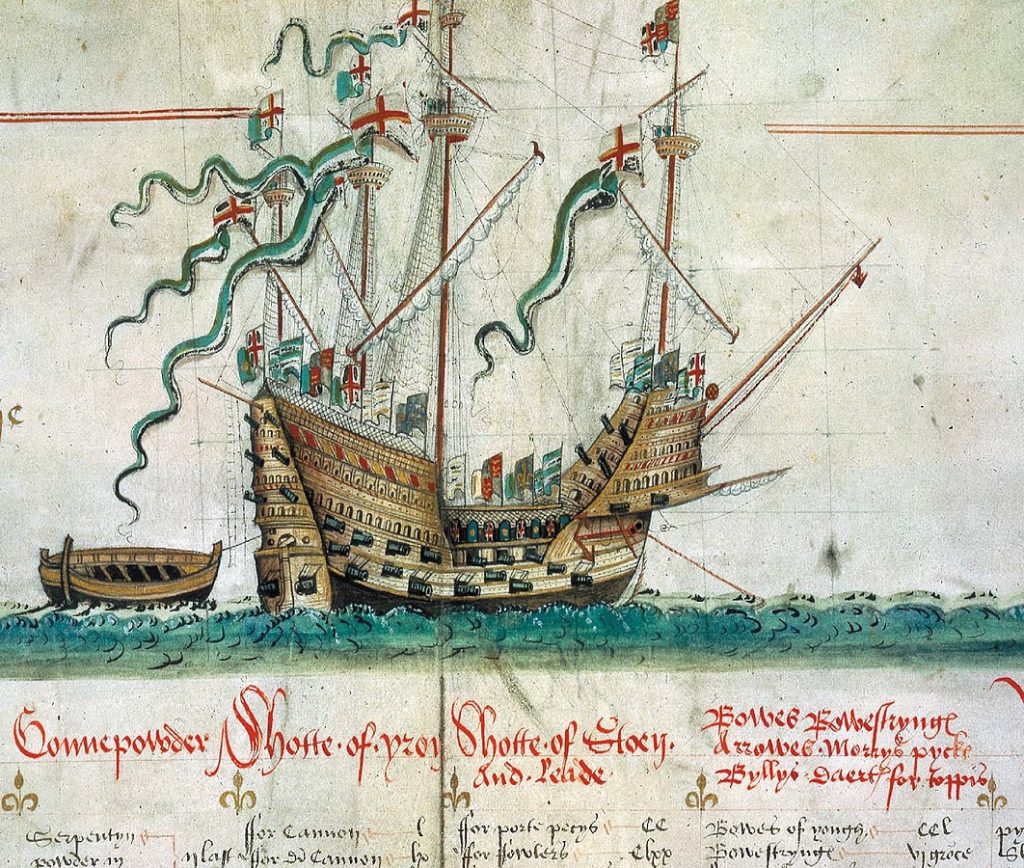 Gonnepowder
Shotte of yron
Shotte of Stoen
And Leade
Bowes Bowestrynges
Arrowes Morrys pyckes
Byllys Daertes for toppis
Serpentyn
powder in
ij last
ffor Cannon l
ffor di Cannon lx
ffor porte pecys CC
ffor ffowlers Clxx
Bowes of yough CCL
Bowestrynges vi groce